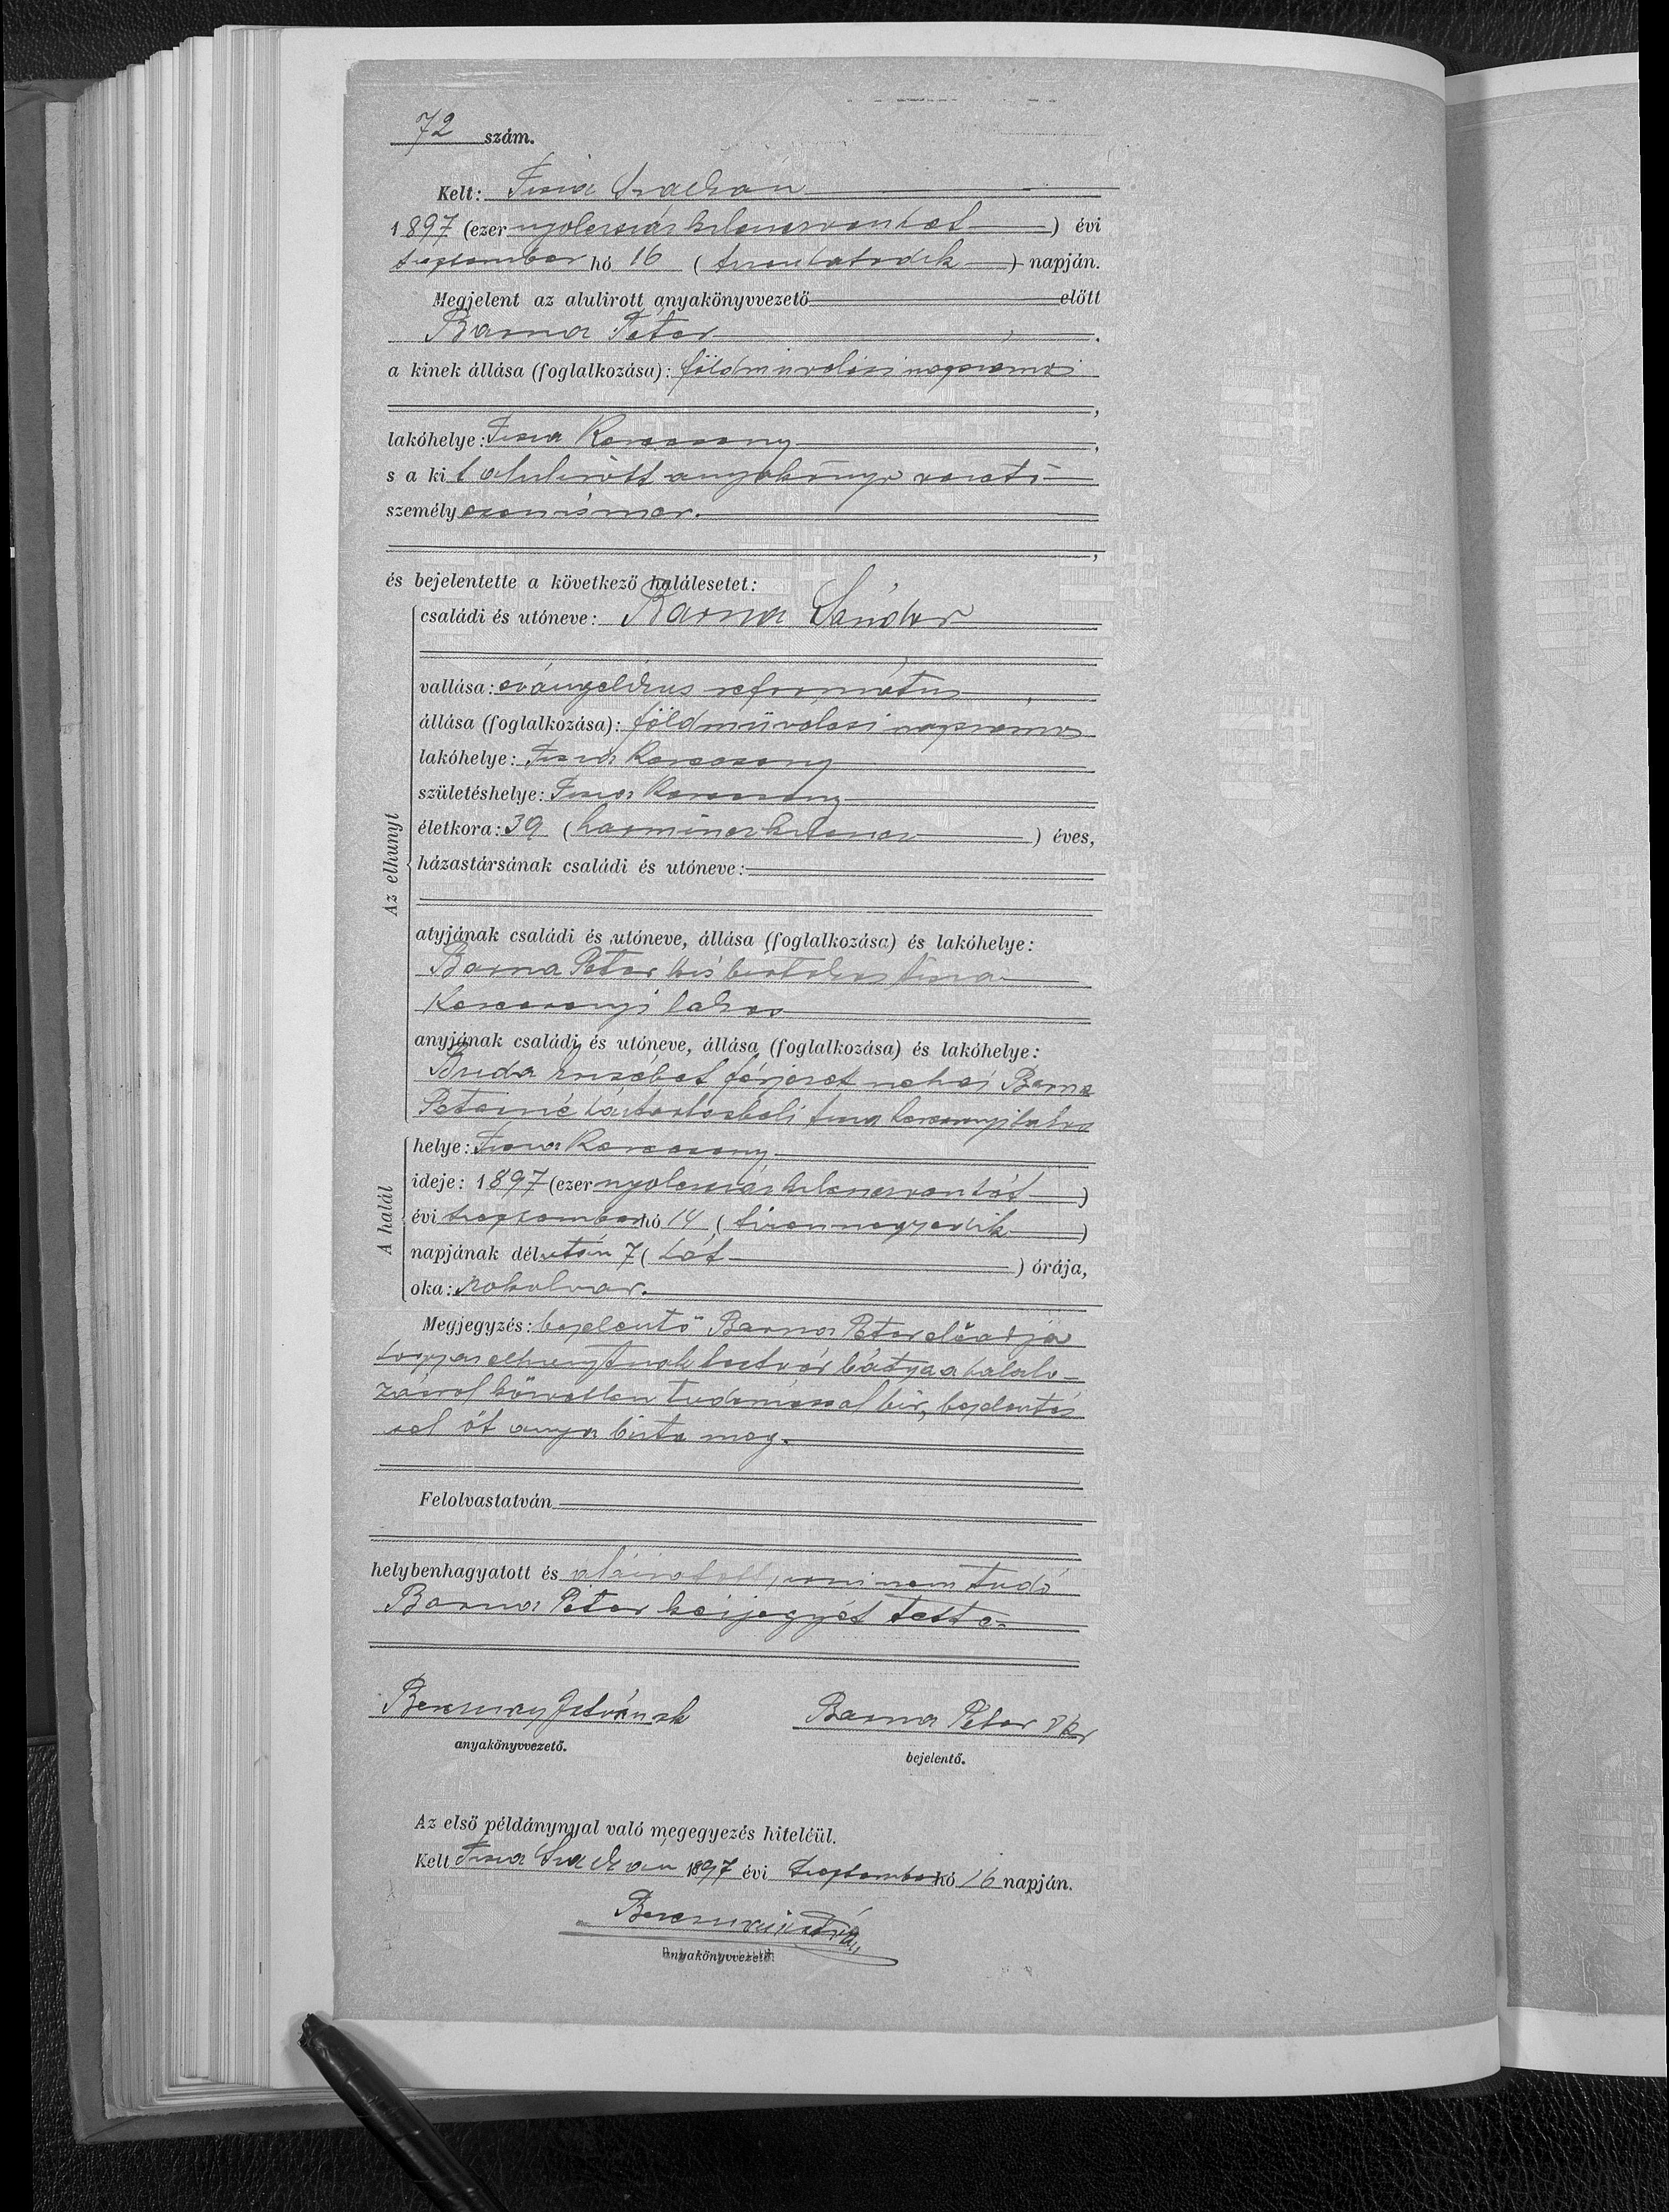 72 szám.
Kelt: Tisza Szalkán
1897 (ezer nyolcszázkilencvenhet) évi
szeptember hó 16 (tizenhatodik) napján.
Megjelent az alulirott anyakönyvvezető előtt
Barna Péter
a kinek állása (foglalkozása): földmüvelési napszamos
,
lakóhelye: Tisza Kerecseny,
s a kit alulirott anyakönyv vezető
személyesen ismer.
,
és bejelentette a következő halálesetet:
családi és utóneve: Barna Sándor
vallása: evángelikus református,
állása (foglalkozása): földmüvelesi napszamos
lakóhelye: Tisza Kerecseny
születéshelye: Tisza Kerecseny
Az elhunyt
életkora: 39 (harminczkilencz) éves,
házastársának családi és utóneve:
atyjának családi és utóneve, állása (foglalkozása) és lakóhelye:
Barna Péter kis birtokos tisza
Kerecsenyi lakos
anyjának családi és utóneve, állása (foglalkozása) és lakóhelye:
Buda Erzsébet férjezet nehai Barna
Peterné háztartásbeli tisza kerecsenyi lakos
A halál
helye: Tisza Kerecseny
ideje: 1897 (ezer nyolcszázkilenczvenhét)
évi szeptember hó 14 (tizennegyedik)
napjának délután 7 (hét) órája,
oka:
Megjegyzés: bejelentő Barna Péter előadja
hogy az elhunytnak testvér bátyja a halalo-
zásrol közvetlen tudomással bir, bejelentés
sel öt anya bizta meg.
Felolvastatván
helybenhagyatott és aláiratott, irni nem tudó
Barna Péter kézjegyét tette.
Bereznay István sk
anyakönyvvezető.
Barna Péter
bejelentő.
Az első példánynyal való megegyezés hiteléül.
Kelt Tisza Szalkán 1897 évi szeptember hó 16 napján.
Bereznai István
anyakönyvvezető